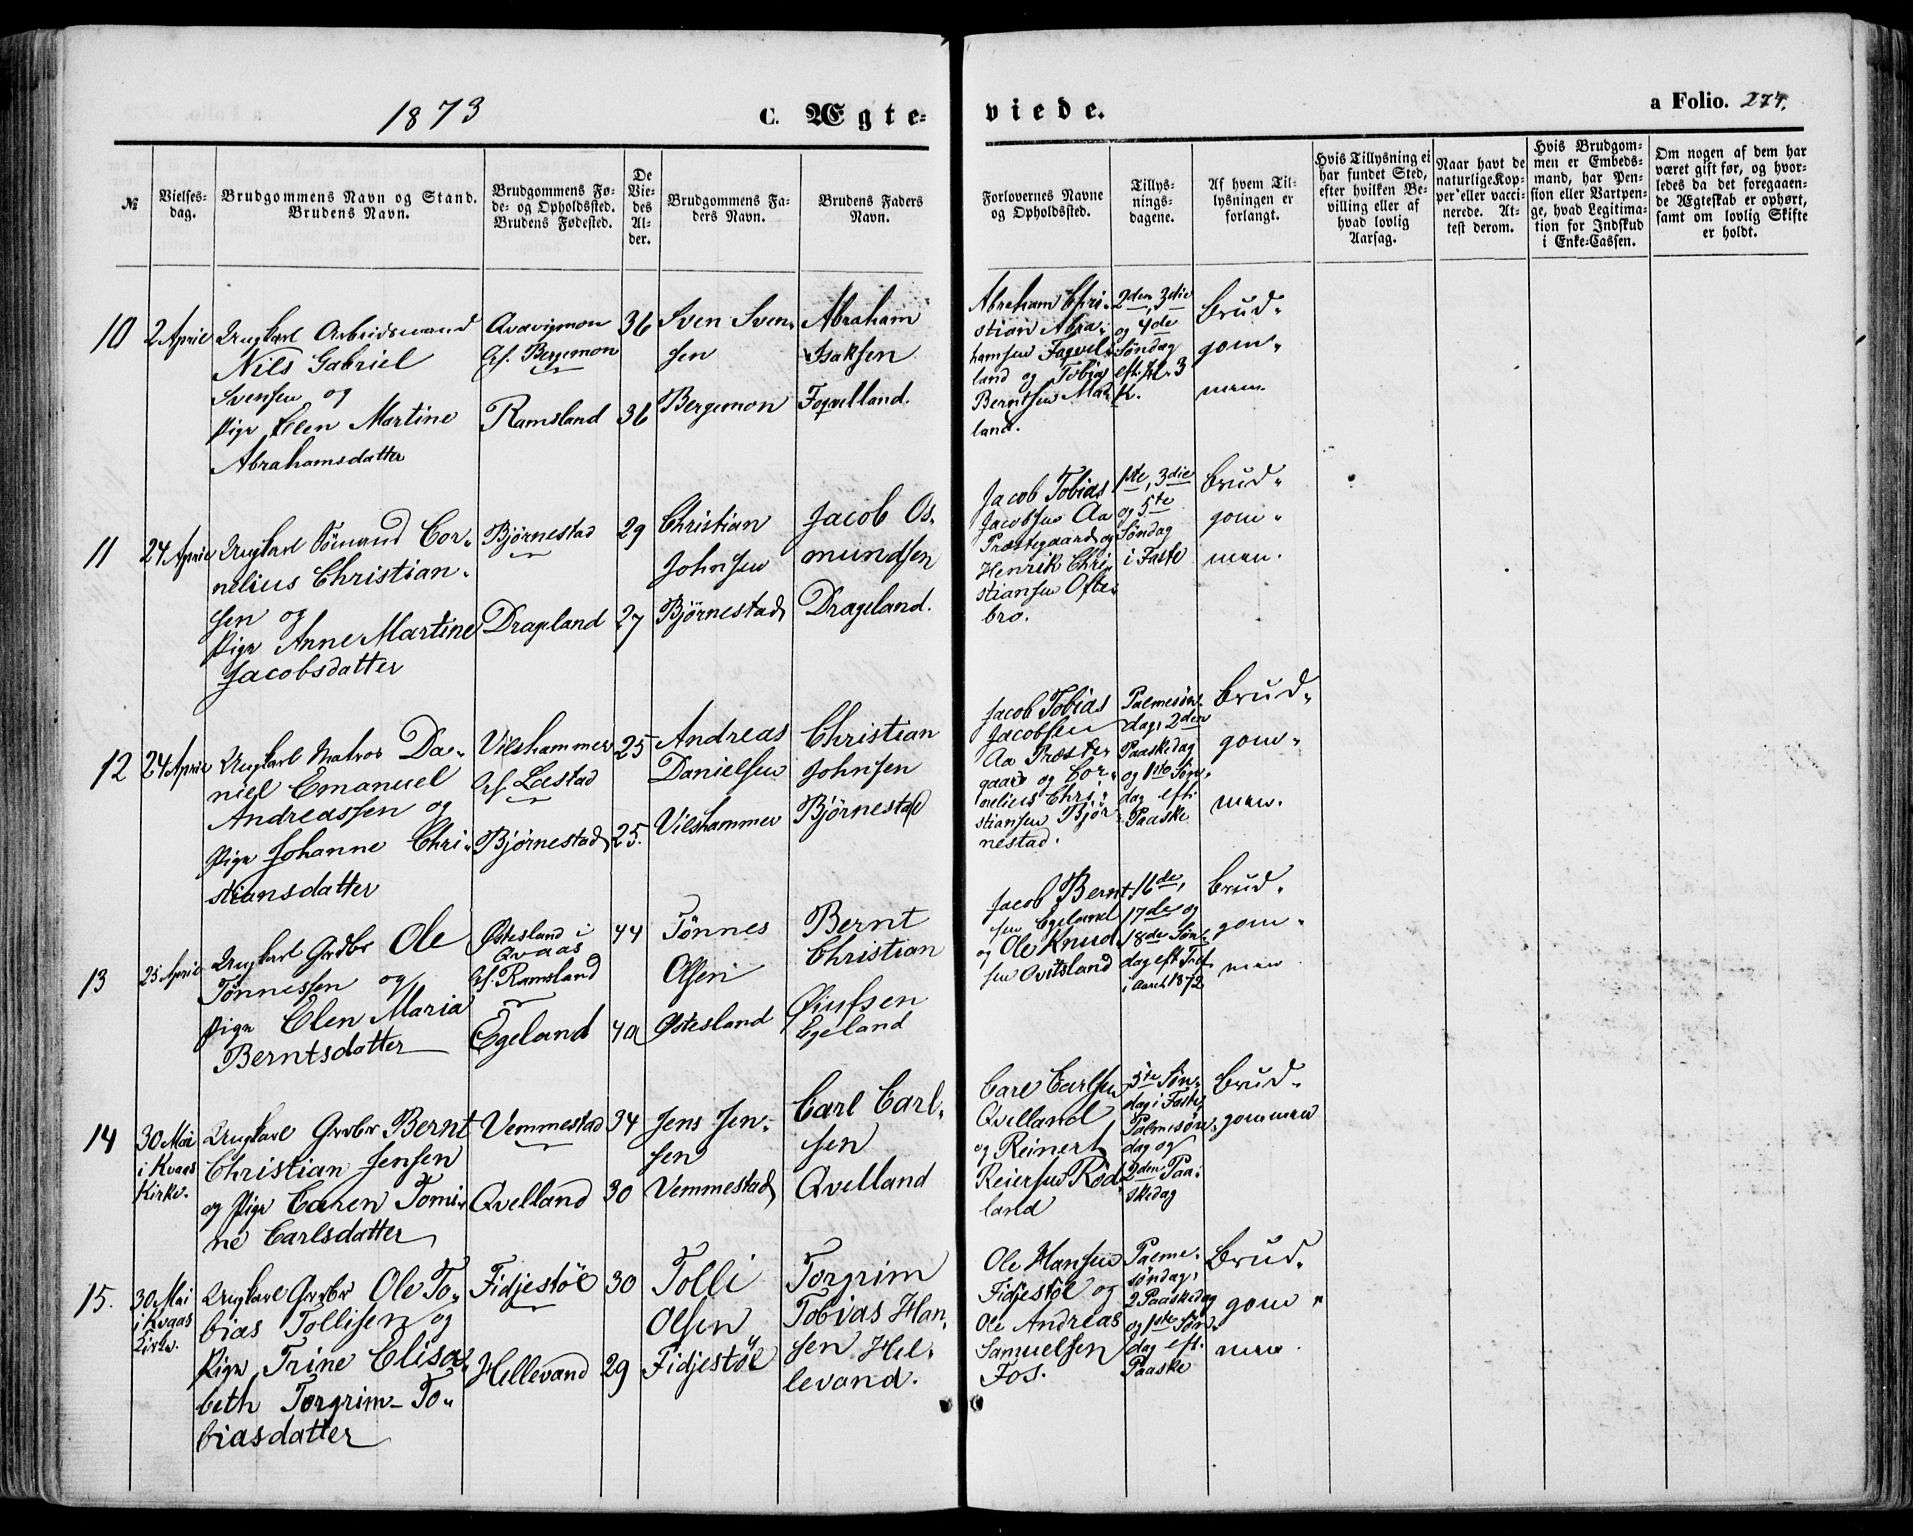 1873
C. Ægte-
viede.
a Folio. 274.
№
Vielses-
dag.
Brudgommens Navn og Stand.
Brudens Navn.
Brudgommens Fø-
de- og Opholdssted.
Brudens Fødested.
De
Vie-
des
Al-
der.
Brudgommens Fa-
ders Navn.
Brudens Faders
Navn.
Forlovernes Navne
og Opholdssted.
Tillys-
nings-
dagene.
Af hvem Til-
lysningen er
forlangt.
Hvis Tillysning ei
har fundet Sted,
efter hvilken Be-
villing eller af
hvad lovlig
Aarsag.
Naar havt de
naturlige Kop-
per eller vacci-
nerede. At-
test derom.
Hvis Brudgom-
men er Embeds-
mand, har Pen-
sion eller Vartpen-
ge, hvad Legitima-
tion for Indskud
i Enke-Cassen.
Om nogen af dem har
været gift før, og hvor-
ledes da det foregaaen-
de Ægteskab er ophørt,
samt om lovlig Skifte
er holdt.
10
2 April
Ungkarl Arbeidsmand
Nils Gabriel
Svensen og
Pige Elen Martine
Abrahamsdatter
Qvavigmon
Bergemon
Ramsland
36
36
Sven Sven-
sen
Bergemon
Abraham
Isaksen
Foqvelland.
Abraham Chri-
stian Abra-
hamsen Foqvel-
land og Tobias
Berntsen Mak-
land.
2den, 3die
og 4de
Søndag
eft. H. 3
K.
Brud-
gom-
men.
11
24 April
Ungkarl Sömand Cor-
nelius Christian-
sen og
Pige Anne Martine
Jacobsdatter
Bjørnestad
Drageland
29
27
Christian
Johnsen
Bjørnestad
Jacob Os-
mundsen
Drageland.
Jacob Tobias
Jacobsen Aa
Præstegaard og
Henrik Chri-
stiansen Ofte-
bro.
1ste, 3die
og 5te
Søndag
i Faste
Brud-
gom-
men.
12
24 April
Ungkarl Matros Da-
niel Emanuel
Andreassen og
Pige Johanne Chri-
stiansdatter
Vilshammer
Læstad
Bjørnestad
25
25.
Andreas
Danielsen
Vilshammer
Christian
Johnsen
Bjørnestad
Jacob Tobias
Jacobsen
Aa Præste-
gaard og Cor-
nelius Chri-
stiansen Bjør-
nestad.
Palmesøn-
dag, 2den
Paaskedag
og 1ste Søn-
dag eft.
Paaske
Brud-
gom-
men.
13
25 April
Ungkarl Grdbr Ole
Tønnessen og
Pige Elen Maria
Berntsdatter
Østesland i
Qvaas
Ramsland
Egeland
44
40
Tønnes
Olsen
Østesland
Bernt
Christian
Egeland
Jacob Bernt-
sen Egeland
og Ole Knud-
sen Qvitsland
16de,
17de og
18de Søn-
dag eft Tref.
i Aaret 1872
Brud-
gom-
men
14
30 Mai
i Kvaas
Kirke.
Ungkarl Grdbr Bernt
Christian Jensen
og Pige Caren Tomi-
ne Carlsdatter
Vemmestad
Qvelland
34
30
Jens Jen-
sen
Vemmestad
Carl Carl-
sen
Qvelland
Carl Carlsen
Qvelland
og Reinert
Reiersen Rød-
land
5te Søn-
dag i Faste,
Palmesøn-
dag og
2den Paa-
skedag
Brud-
gommen
15.
30 Mai
i Kvaas
Kirke.
Ungkarl Grdbr Ole To-
bias Tollisen og
Pige Trine Elisa-
beth Torgrim-To-
biasdatter
Fidjestøl
Hellevand
30
29
Tolli
Olsen
Fidjestøl
Torgrim
Tobias Han-
sen Hel-
levand.
Ole Hansen
Fidjestøl og
Ole Andreas
Samuelsen
Fos.
Palme-
søndag,
2 Paaskedag
og 1ste Søn-
dag eft.
Paaske
Brud-
gom-
men.